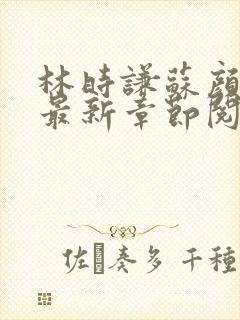 林時謙蘇顏
最新章節閱
佐�奏多 千種